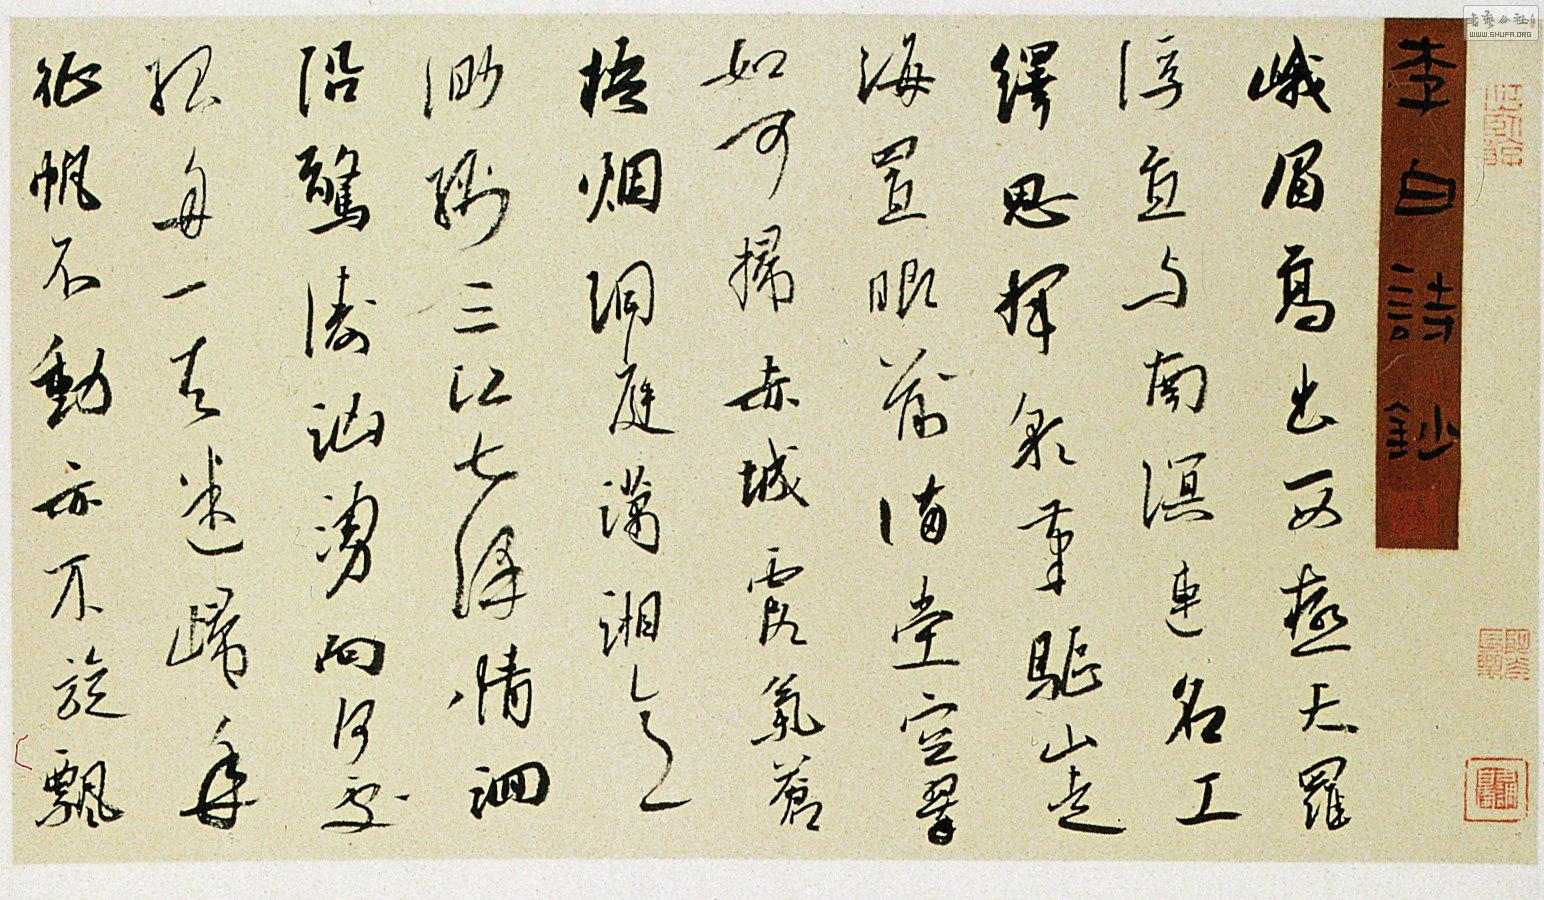 書藝公社
WWW.SHUFA.ORG
李白詩鈔
峨眉高出西極天羅
浮直与南溟連名工
繹思揮彩筆驅山走
海置眼前滿堂空翠
如可掃赤城霞氣蒼
梧烟洞庭瀟湘意
渺綿三江七澤情洄
沿驚濤洶湧向何處
孤舟一去迷歸年
征帆不動亦不旋飄